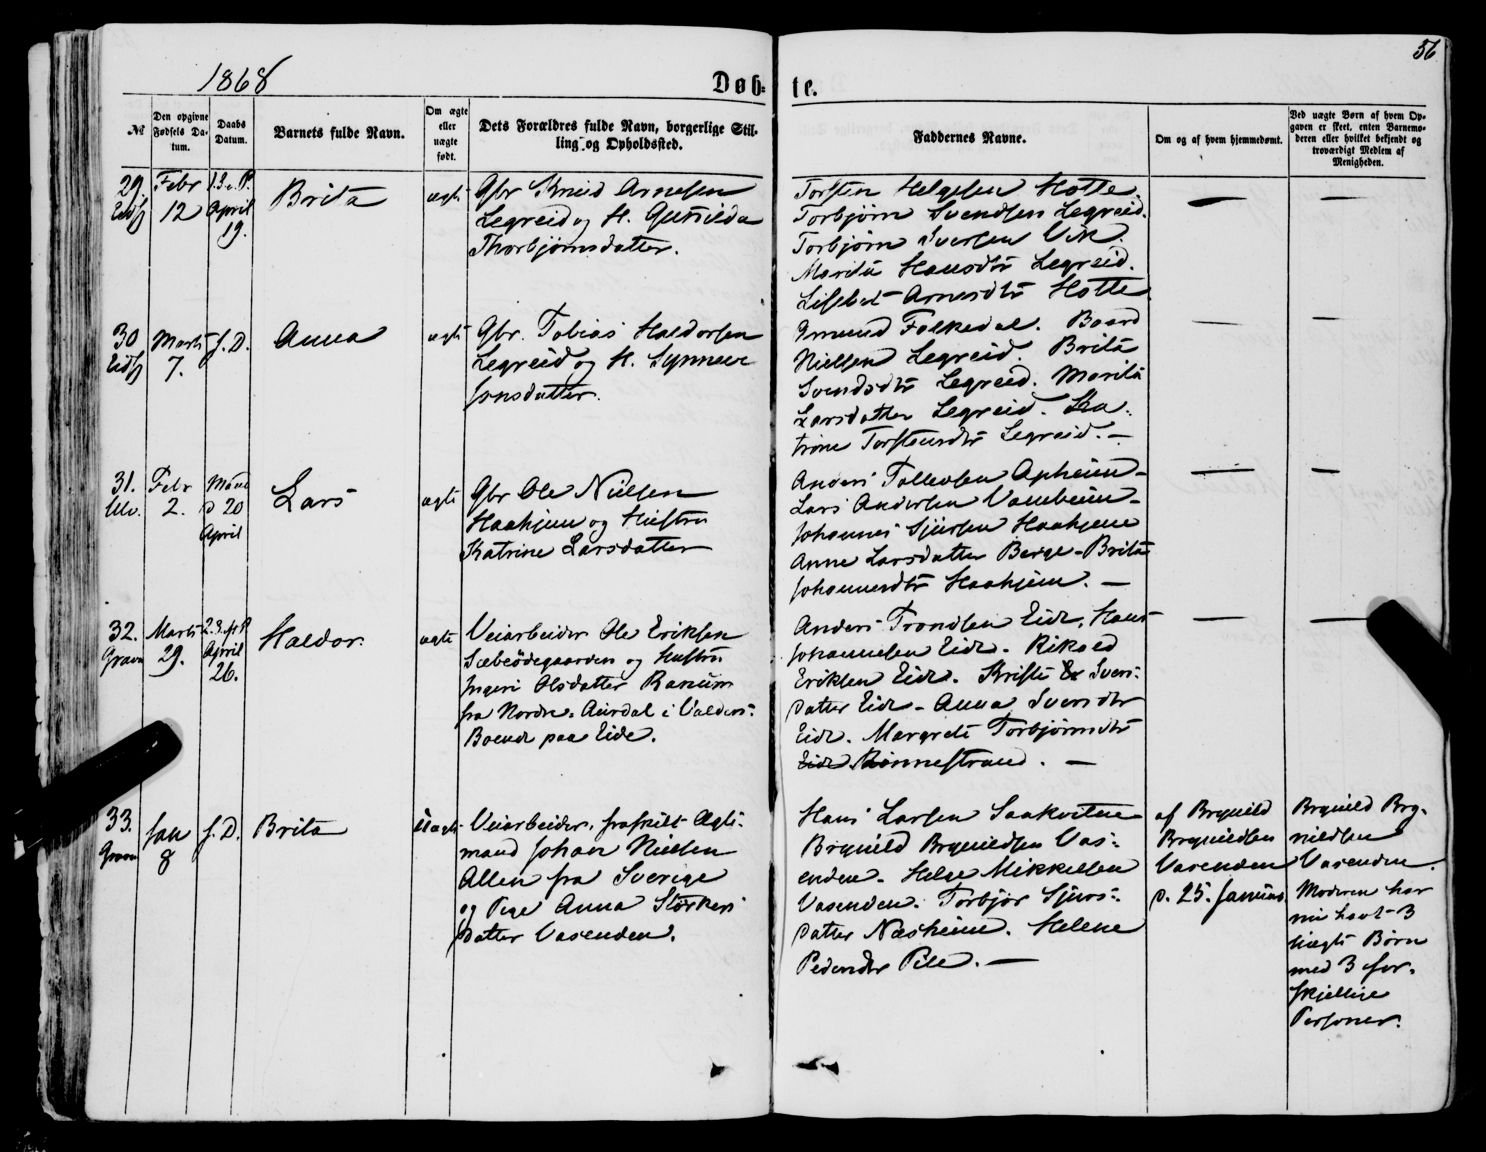 56
1868
Døb-
te.
№
Den opgivne
Fødsels Da-
tum.
Daabs
Datum.
Barnets fulde Navn.
Om ægte
eller
uægte
født.
Dets Forældres fulde Navn, borgerlige Stil-
ling og Opholdssted.
Faddernes Navne.
Om og af hvem hjemmedømt.
Ved uægte Børn af hvem Op-
gaven er skeet, enten Barnemo-
deren eller hvilket bekjendt og
troværdigt Medlem af
Menigheden.
29.
Eidfj
Febr
12
April
19.
Brita
ægte
Gbr Knud Arnesen
Legreid og H. Gunilda
Thorbjørnsdatter.
Torsten Helgesen Hotle
Torbjørn Svendsen Legreid.
Torbjørn Iversen Vik.
Marita Hansdtr Legreid.
Lisbet Arnesdtr Hotle
30
Eidfj
Marts
7.
s. D.
Anna
ægte
Gbr. Tobias Haldorsen
Legreid og H. Synneve
Jonsdatter.
Amund Folkedal. Baard
Nielsen Legreid. Brita
Svendsdtr Legreid. Marita
Larsdatter Legreid. Ka-
trine Torstensdtr Legreid. —
31.
Ulv.
Febr
2.
d 20
April
Lars
ægte
Gbr Ole Nielsen
Haahjem og Hustru
Katrine Larsdatter
Anders Tollevsen Apheim -
Lars Andersen Vambeim -
Johannes Sjursen Haahjem
Anne Larsdatter Berge - Brita
Johannesdtr Haahjem. —
32.
Gravn
Marts
29.
2. S. f. P
April
26.
Haldor.
ægte
Veiarbeider Ole Eriksen
Sæbeødegaarden og Hustru
Ingeri Olsdatter Ranum
fra Nordre Aurdal i Valders-
Boende paa Eide.
Anders Trondsen Eide. Hans
Johannesen Eide. Rikoed
Eriksen Eide. Kristi Svens-
datter Eide - Anna Svensdtr
Eide. Margrete Torbjørnsdtr
Eide Rønnestrand. —
33.
Gravn
Jan
8
s. D.
Brita
uægte
Veiarbeider, fraskilt Ægte-
mand Johan Nielsen
Allen fra Sverige
og Pige Anna Størker-
datter Vasenden.
Hans Larsen Saakvitne
Brynild Brynildsen Vas-
enden. Helge Mikkelsen
Vasenden. Torbjør Sjurs-
datter Næsheim. Helene
Pedersdtr Pile. —
af Brynild
Brynildsen
Vasenden
d. 25. Januar.
Brynild Bry-
nildsen
Vasenden.
Moderen har
nu havt 3
uægte Børn
med 3 for-
skjellige
Personer.